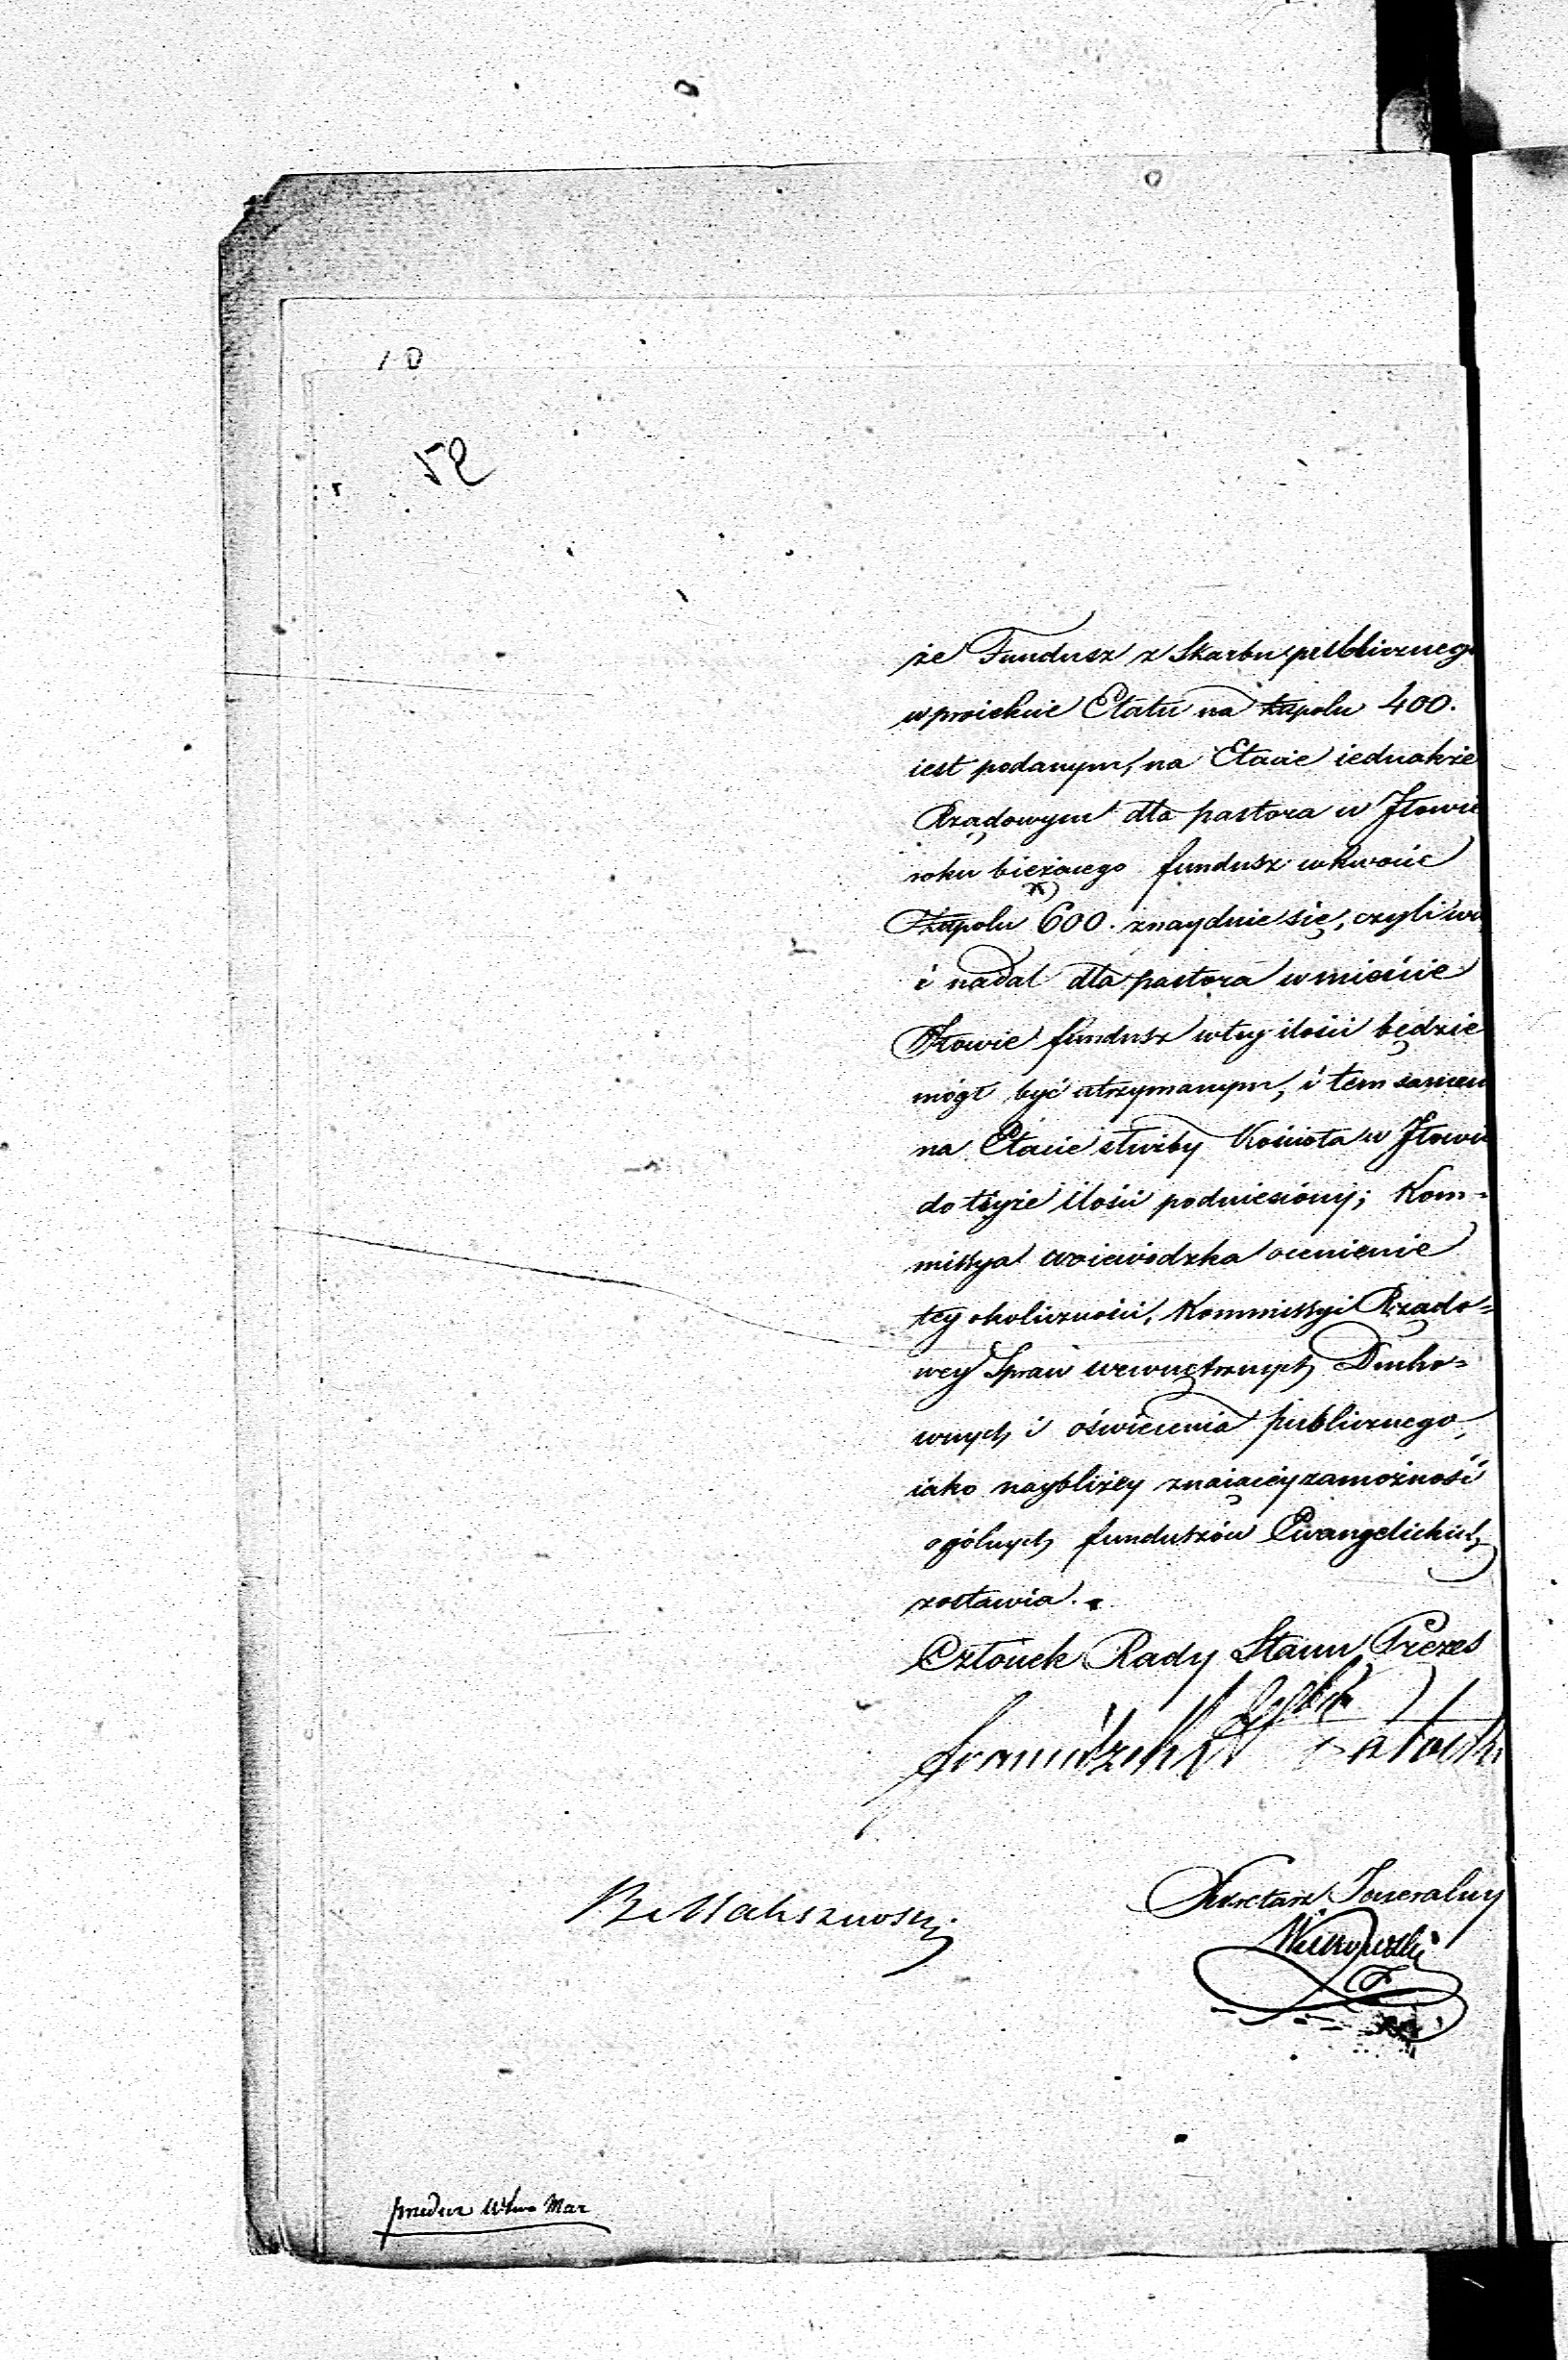 że Fundusz z Skarbu publicznego
w proiekcie Etatu na złpolu 400.
iest podanym, na Etacie iednakże
Rządowym dla pastora w Iłowie
roku bieżącego fundusz w kwocie
Złpolu 600. znayduie się, czyli
i nadal dla pastora w mieście
Iłowie fundusz w tey ilości będzie
mógł być utrzymanym, i tem samem
na Etacie służby Kościoła w Iłowie
do teyże ilości podniesiony; Kom=
missya woiewódzka ocenienie
tey okoliczności, Kommissyi Rządo=
wey Spraw wewnętrznychDucho=
wnych i oświecenia publicznego,
iako naybliżey znaiącey zamożność
ogólnych funduszów Ewangelickich
zostawia.
Członek Rady Stanu Prezes
Sekretarz Jeneralny